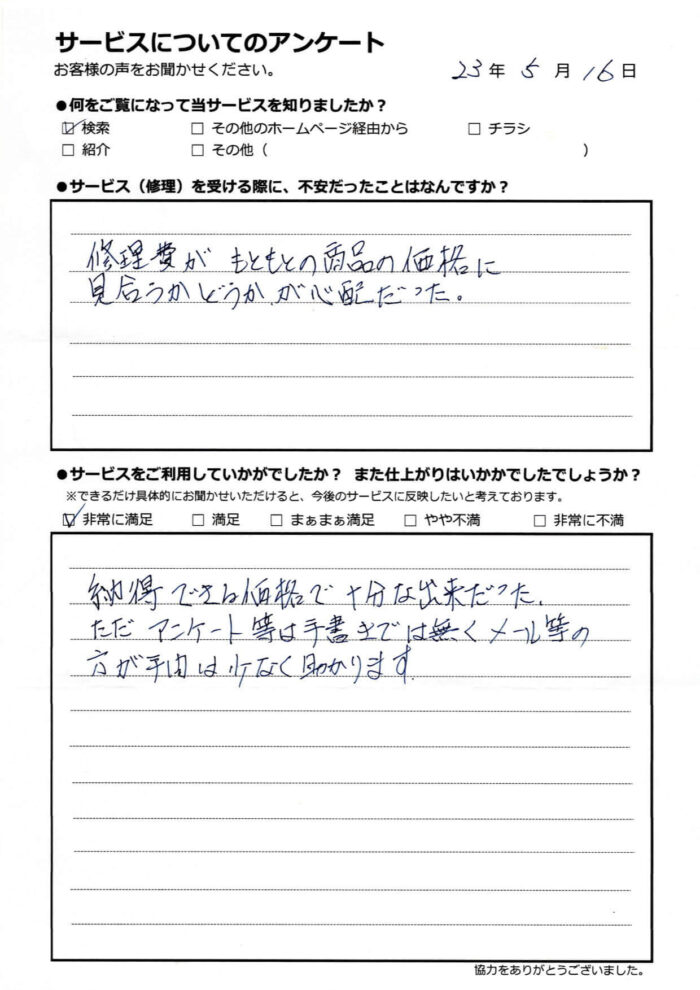 サービスについてのアンケート
お客様の声をお聞かせください。
23年 5月 16日
●何をご覧になって当サービスを知りましたか？
☑ 検索 □ その他のホームページ経由から □ チラシ
□ 紹介 □ その他（ ）
●サービス（修理）を受ける際に、不安だったことはなんですか？
修理費が もともとの商品の価格に
見合うかどうか が心配だった。
●サービスをご利用していかがでしたか？ また仕上がりはいかかでしたでしょうか？
※できるだけ具体的にお聞かせいただけると、今後のサービスに反映したいと考えております。
☑ 非常に満足 □ 満足 □ まぁまぁ満足 □ やや不満 □ 非常に不満
納得できる価格で 十分な出来だった.
ただ アンケート等は手書きでは無くメール等の
方が手間は少なく助かります.
協力をありがとうございました。